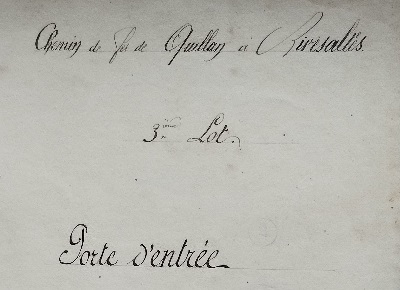 Chemin de fer de Quillan à Rivesaltes
3ème Lot.
Porte d'entrée